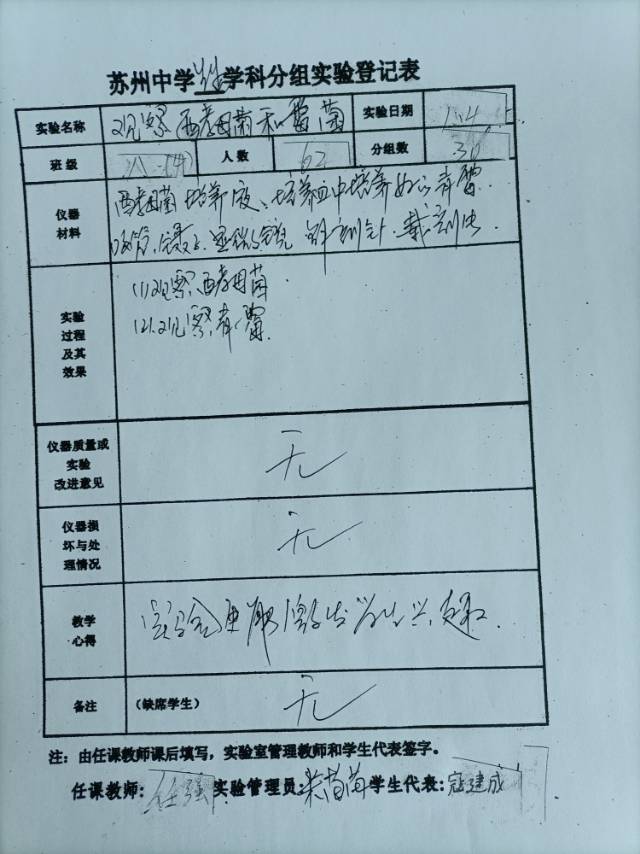 苏州中学生物学科分组实验登记表
实验名称 观察酵母菌和霉菌 实验日期 11.4
班级 八.(4) 人数 62 分组数 30
仪器材料 酵母菌培养液、培养皿中培养好的青霉.
滴管、镊子、显微镜 解剖针.载
实验过程及其效果 (1)观察酵母菌
(2).观察青霉.
仪器质量或实验改进意见 无
仪器损坏与处理情况 无
教学心得 实验更能激发学生兴趣.
备注 (缺席学生) 无
注：由任课教师课后填写，实验室管理教师和学生代表签字。
任课教师: 任强 实验管理员: 苗苗 学生代表: 寇建成